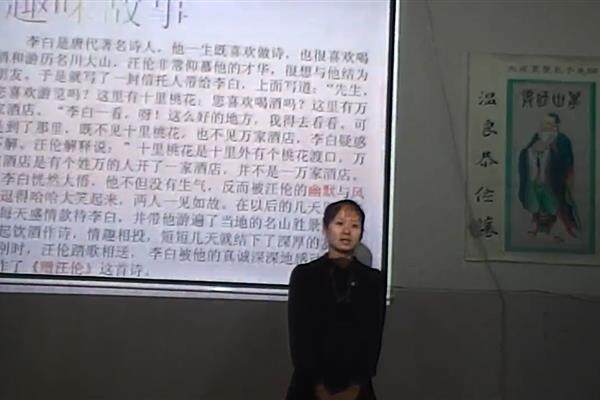 趣味故事
李白是唐代著名诗人，他一生既喜欢做诗，也很喜欢喝
酒和游历名川大山，汪伦非常仰慕他的才华，很想与他结为
朋友，于是就写了一封信托人带给李白，上面写道：“先生，
您喜欢游览吗？这里有十里桃花；您喜欢喝酒吗？这里有万
家酒店。”李白一看，呀！这么好的地方，我得去看看，可
是到了那里，既不见十里桃花，也不见万家酒店，李白疑惑
不解，汪伦解释说：“十里桃花是十里外有个桃花渡口，万
酒店是有个姓万的人开了一家酒店，并不是一万家酒店，
李白恍然大悟，他不但没有生气，反而被汪伦的幽默与风
逗得哈哈大笑起来，两人一见如故。在以后的几天
每天盛情款待李白，并带他游遍了当地的名山胜景
起饮酒作诗，情趣相投，短短几天就结下了深厚的
别时，汪伦踏歌相送，李白被他的真诚深深地感
作了《赠汪伦》这首诗。
温良恭俭让